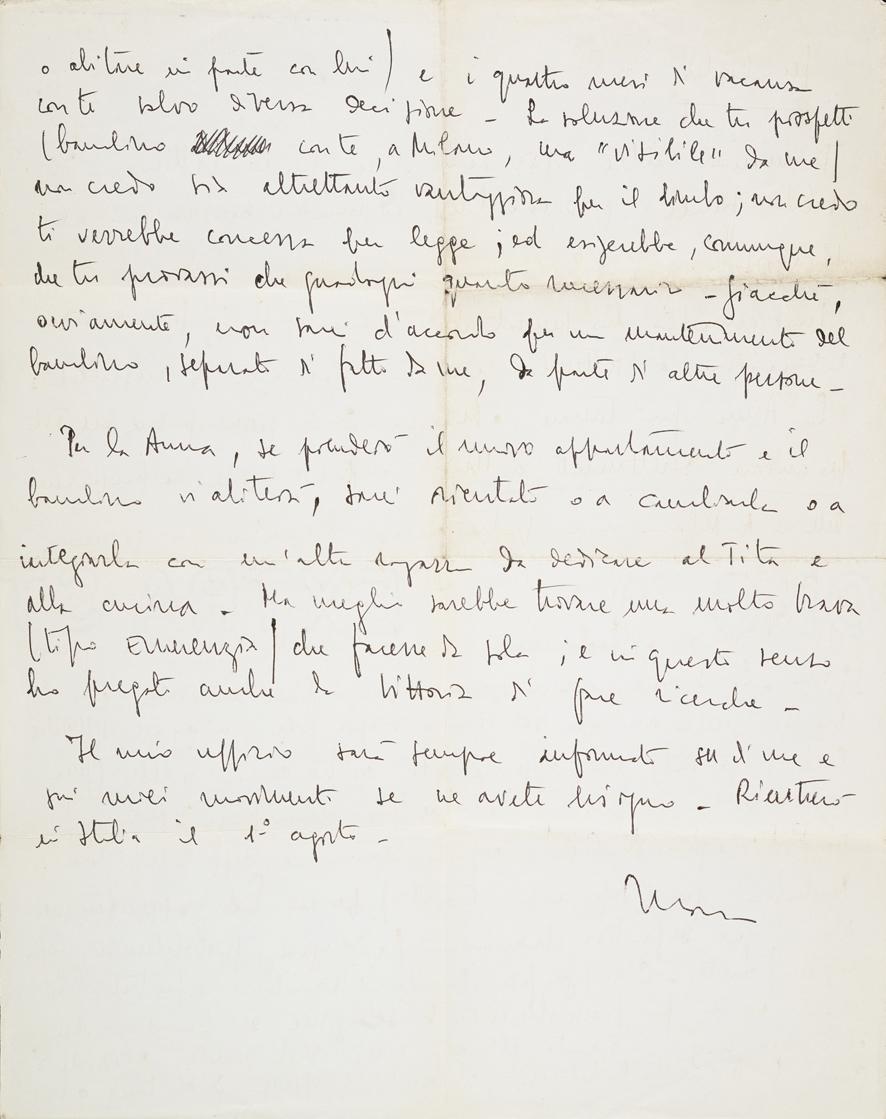 o abitare in parte con lui) e i quattro mesi di vacanza
con te salvo diversa decisione - La soluzione che tu prospetti
(bambino con te, a Milano, ma "visibile" da me)
non credo sia altrettanto vantaggiosa per il bimbo; non credo
ti verrebbe concessa per legge; ed esigerebbe, comunque,
che tu provassi che guadagni quanto necessario - Giacché,
ovviamente, non sarei d'accordo per un mantenimento del
bambino, separato di fatto da me, da parte di altre persone -
Per la Anna, se prenderò il nuovo appartamento e il
bambino vi abiterà, sarei orientato o a cambiarla o a
integrarla con un'altra ragazza da dedicare al Tita e
alla cucina - Ma meglio sarebbe trovare una molto brava
(tipo Emerenzia) che facesse da sola; e in questo senso
ho pregato anche la Vittoria di fare ricerche -
Il mio ufficio sarà sempre informato su di me e
sui miei movimenti se ne avete bisogno - Rientrerò
in Italia il 1° agosto -